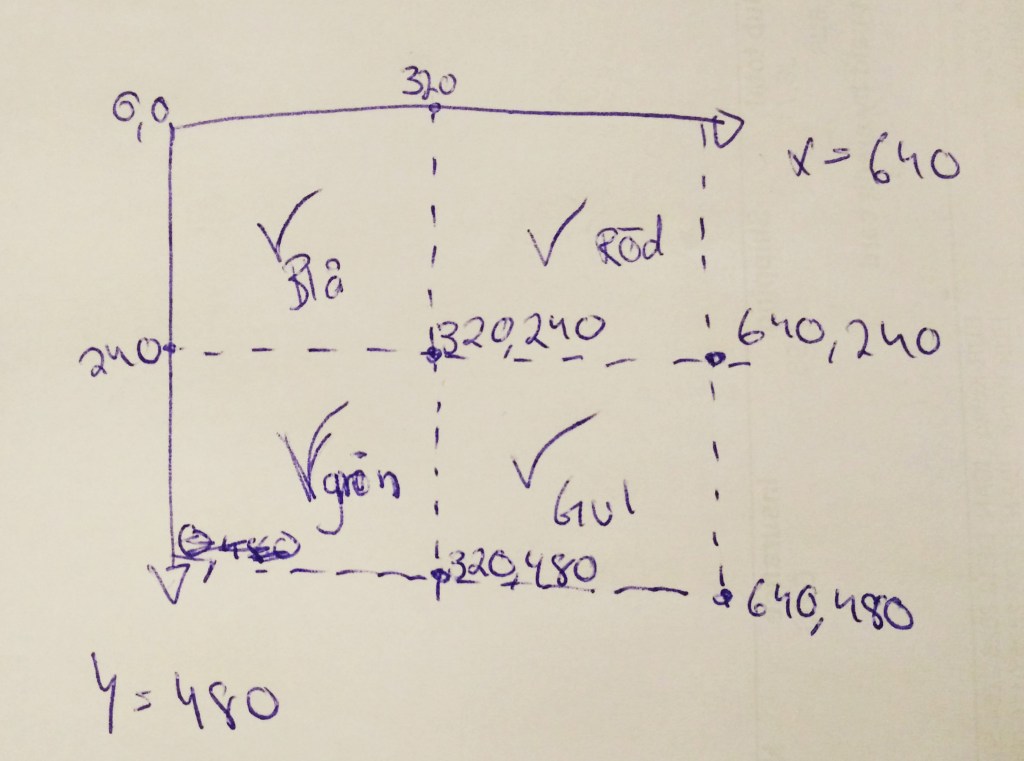 320
0,0
x = 640
Röd
Blå
320,240
640,240
240
grön
Gul
0,480
320,480
640,480
y = 480